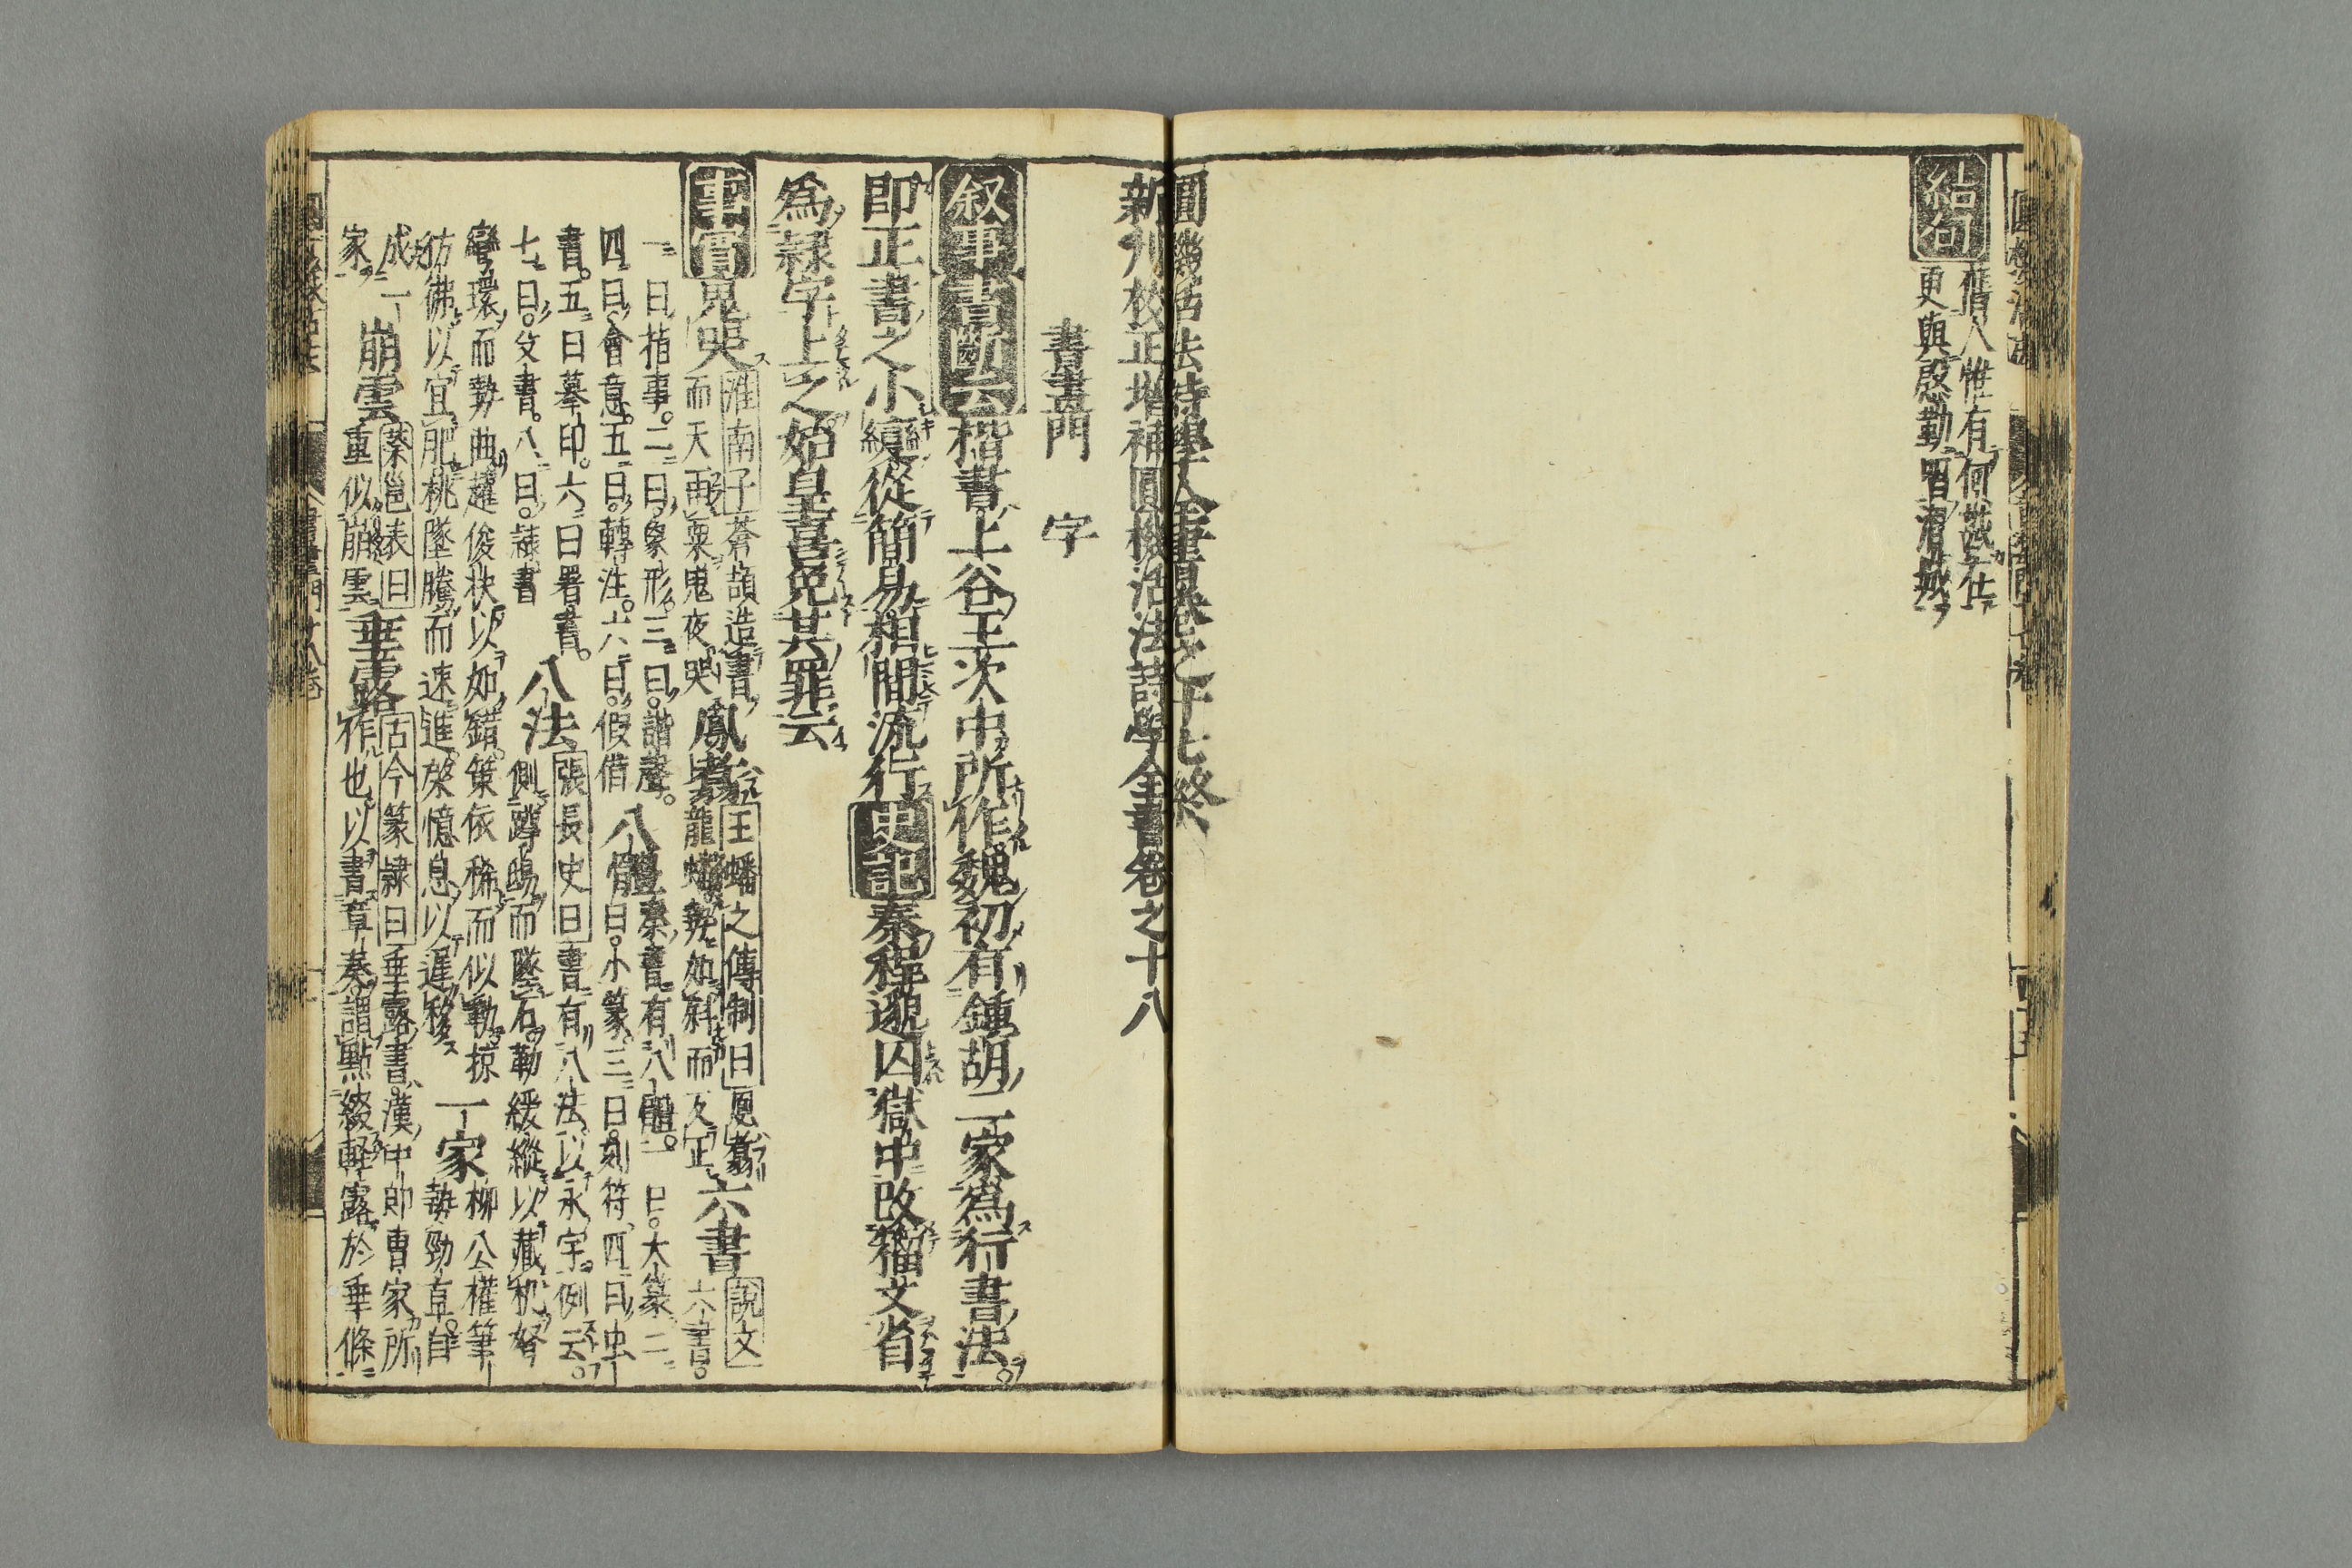 結句
借人惟有何戡在
更與慇懃唱渭城
圓機活法詩學全書卷之十七終
新刋校正增補圓機活法詩學全書卷之十八
書畫門
字
叙事 書斷云 楷書上谷王次中所作魏初有鍾胡二家爲行書法
即正書之小纔從簡易相間流行 史記 秦程邈囚獄中改籀文省
爲隷字上之始皇喜免其罪云
事實 鬼哭 淮南子蒼頡造書
而天雨粟鬼夜哭 鳳翥 王蟠之傳制曰鳳翥
龍蟠勢如斜而反正 六書 說文
六書
一曰指事二曰象形三曰諧聲
四曰會意五曰轉注六曰假借 八體 秦書有八體一曰大篆二
曰小篆三曰刻符四曰虫
書五曰摹印六曰署書
七曰殳書八曰隷書 八法 張長史曰書有八法以永字例云
側蹲鴟而墜石勒緩縱以藏機努
彎環而勢曲趯俊抉以如錯策依稀而似勒掠
彷彿以宜肥桃墜騰而速進磔憶息以遲移 一家 柳公權筆
勢勁直自
成一
家 崩雲 蔡邕表曰
重似崩雲 垂露 古今篆隷曰垂露書漢中郎曹家所
作也以書章奏謂點綴輕露於垂條